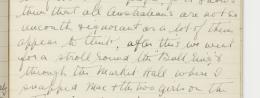 them that all Australians are not so
uncouth & ignorant as a lot of them
appear to think, after this we went
for a stroll round the "Bull Ring" &
through the Market Hall where I
snapped Mac & the two girls on the